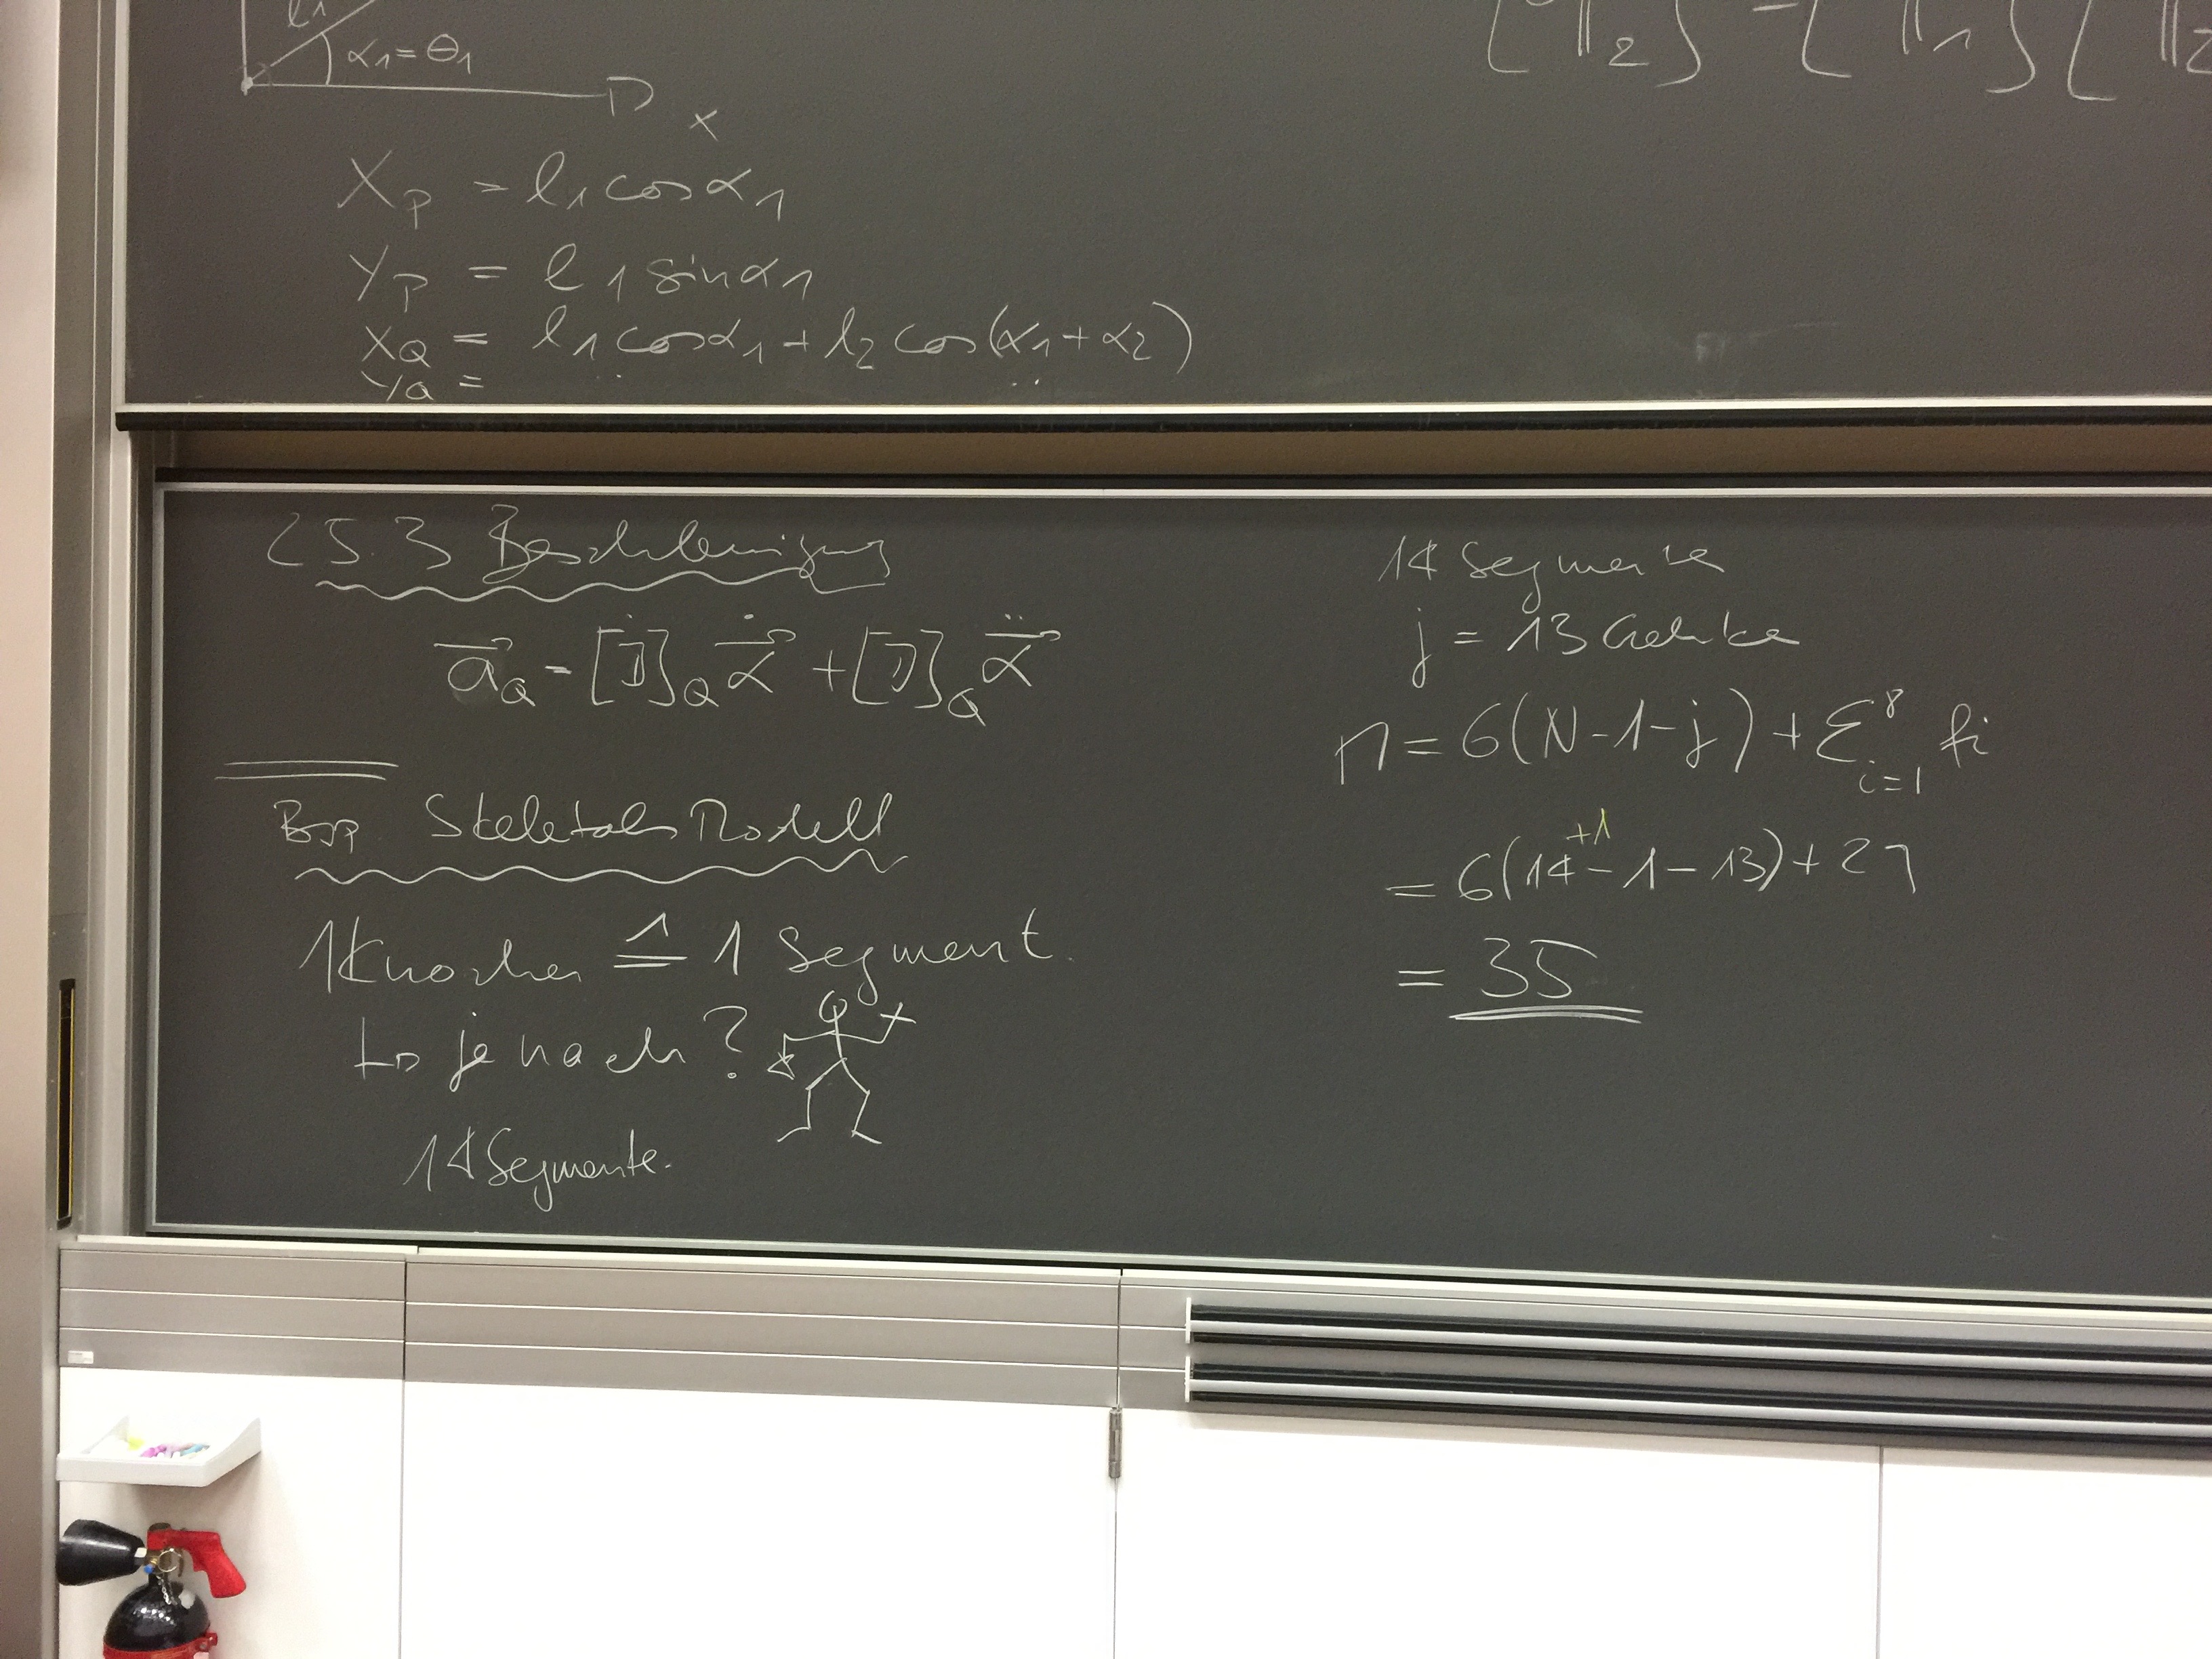 l1
α1 = θ1
x
[ 2 ] = [ 1 ] [ 2
xP = l1 cos α1
yP = l1 sin α1
xQ = l1 cos α1 + l2 cos(α1 + α2)
yQ = .. ..
2.5.3 Beschleunigung
aQ = [J̇]Q α̇ + [J]Q α̈
Bsp Skeletales Modell
1 Knochen ≙ 1 Segment.
↳ je nach?
14 Segmente.
14 Segmente
j = 13 Gelenke
n = 6(N-1-j) + Σ i=1 fi
+1
= 6(14-1-13) + 29
= 35